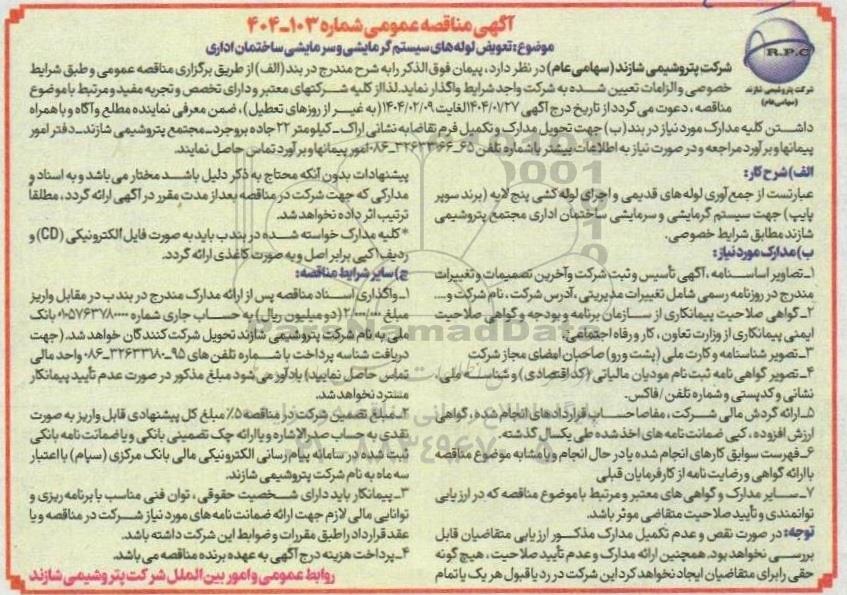 آگهی مناقصه عمومی شماره ۱۰۳-۴۰۴
موضوع: تعویض لوله های سیستم گرمایشی و سرمایشی ساختمان اداری
R.P.C
شرکت پتروشیمی شازند
(سهامی عام)
شرکت پتروشیمی شازند (سهامی عام) در نظر دارد، پیمان فوق الذکر را به شرح مندرج در بند (الف) از طریق برگزاری مناقصه عمومی و طبق شرایط
خصوصی و الزامات تعیین شده به شرکت واجد شرایط واگذار نماید. لذا از کلیه شرکتهای معتبر و دارای تخصص و تجربه مفید و مرتبط با موضوع
مناقصه، دعوت می گردد از تاریخ درج آگهی ۱۴۰۴/۰۱/۲۷ لغایت ۱۴۰۴/۰۲/۰۹ (به غیر از روزهای تعطیل)، ضمن معرفی نماینده مطلع و آگاه و با همراه
داشتن کلیه مدارک مورد نیاز در بند (ب) جهت تحویل مدارک و تکمیل فرم تقاضا به نشانی اراک-کیلومتر ۲۲ جاده بروجرد-مجتمع پتروشیمی شازند-دفتر امور
پیمانها و برآورد مراجعه و در صورت نیاز به اطلاعات بیشتر با شماره تلفن ۶۵-۳۲۶۳۳۱۶۶-۰۸۶ امور پیمانها و برآورد تماس حاصل نمایند.
الف) شرح کار:
عبارتست از جمع آوری لوله های قدیمی و اجرای لوله کشی پنج لایه (برند سوپر
پایپ) جهت سیستم گرمایشی و سرمایشی ساختمان اداری مجتمع پتروشیمی
شازند مطابق شرایط خصوصی.
ب) مدارک مورد نیاز:
۱-تصاویر اساسنامه، آگهی تأسیس و ثبت شرکت و آخرین تصمیمات و تغییرات
مندرج در روزنامه رسمی شامل تغییرات مدیریتی، آدرس شرکت، نام شرکت و....
۲-گواهی صلاحیت پیمانکاری از سازمان برنامه و بودجه و گواهی صلاحیت
ایمنی پیمانکاری از وزارت تعاون، کار و رفاه اجتماعی.
۳-تصویر شناسنامه و کارت ملی (پشت و رو) صاحبان امضای مجاز شرکت
۴-تصویر گواهی نامه ثبت نام مودیان مالیاتی (کد اقتصادی) و شناسه ملی،
نشانی و کدپستی و شماره تلفن / فاکس.
۵-ارائه گردش مالی شرکت، مفاصا حساب قراردادهای انجام شده، گواهی
ارزش افزوده، کپی ضمانت نامه های اخذ شده طی یکسال گذشته.
۶-فهرست سوابق کارهای انجام شده یا در حال انجام و یا مشابه موضوع مناقصه
با ارائه گواهی و رضایت نامه از کارفرمایان قبلی
۷-سایر مدارک و گواهی های معتبر و مرتبط با موضوع مناقصه که در ارزیابی
توانمندی و تأیید صلاحیت متقاضی موثر باشد.
توجه: در صورت نقص و عدم تکمیل مدارک مذکور ارزیابی متقاضیان قابل
بررسی نخواهد بود. همچنین ارائه مدارک و عدم تأیید صلاحیت، هیچ گونه
حقی را برای متقاضیان ایجاد نخواهد کرد این شرکت در رد یا قبول هر یک یا تمام
پیشنهادات بدون آنکه محتاج به ذکر دلیل باشد مختار می باشد و به اسناد و
مدارکی که جهت شرکت در مناقصه بعد از مدت مقرر در آگهی ارائه گردد، مطلقا
ترتیب اثر داده نخواهد شد.
*کلیه مدارک خواسته شده در بند ب باید به صورت فایل الکترونیکی (CD) و
ردیف ۱ کپی برابر اصل و به صورت کاغذی ارائه گردد.
ج) سایر شرایط مناقصه:
۱-واگذاری اسناد مناقصه پس از ارائه مدارک مندرج در بند ب در مقابل واریز
مبلغ ۲/۰۰۰/۰۰۰ (دو میلیون ریال) به حساب جاری شماره ۰۱۰۵۷۶۳۷۸۰۰۰۰ بانک
ملی به نام شرکت پتروشیمی شازند تحویل شرکت کنندگان خواهد شد. (جهت
دریافت شناسه پرداخت با شماره تلفن های ۹۵-۳۲۶۳۳۱۸۰-۰۸۶ واحد مالی
تماس حاصل نمایید) یادآور می شود مبلغ مذکور در صورت عدم تأیید پیمانکار
مسترد نخواهد شد.
۲-مبلغ تضمین شرکت در مناقصه ۵٪ مبلغ کل پیشنهادی قابل واریز به صورت
نقدی به حساب صدرالاشاره و یا ارائه چک تضمینی بانکی و یا ضمانت نامه بانکی
ثبت شده در سامانه پیام رسانی الکترونیکی مالی بانک مرکزی (سپام) با اعتبار
سه ماه به نام شرکت پتروشیمی شازند.
۳-پیمانکار باید دارای شخصیت حقوقی، توان فنی مناسب با برنامه ریزی و
توانایی مالی لازم جهت ارائه ضمانت نامه های مورد نیاز شرکت در مناقصه و یا
عقد قرارداد را طبق مقررات و ضوابط این شرکت داشته باشد.
۴-پرداخت هزینه درج آگهی به عهده برنده مناقصه می باشد.
روابط عمومی و امور بین الملل شرکت پتروشیمی شازند
ParsNamadData